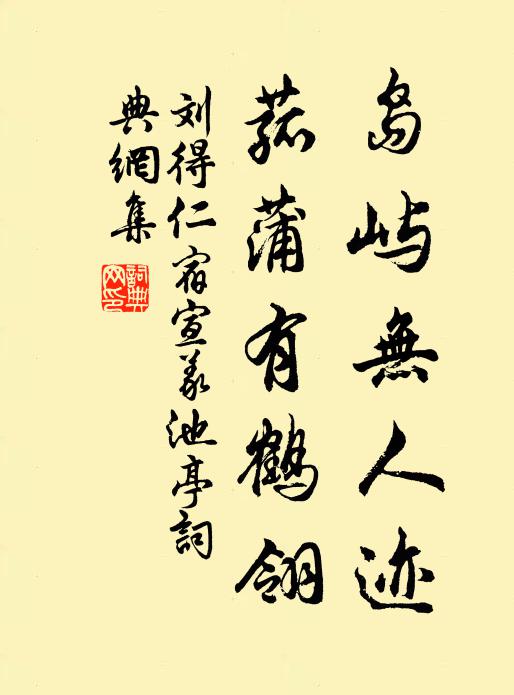 島屿無人迹
菰蒲有鶴翎
刘得仁宿宣義池亭詞
典網集
詞典
网印